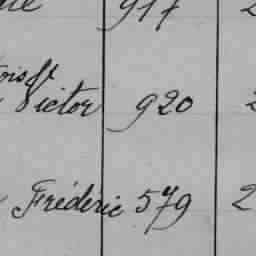 917 2
Victor 920 2
Frédéric 579 2